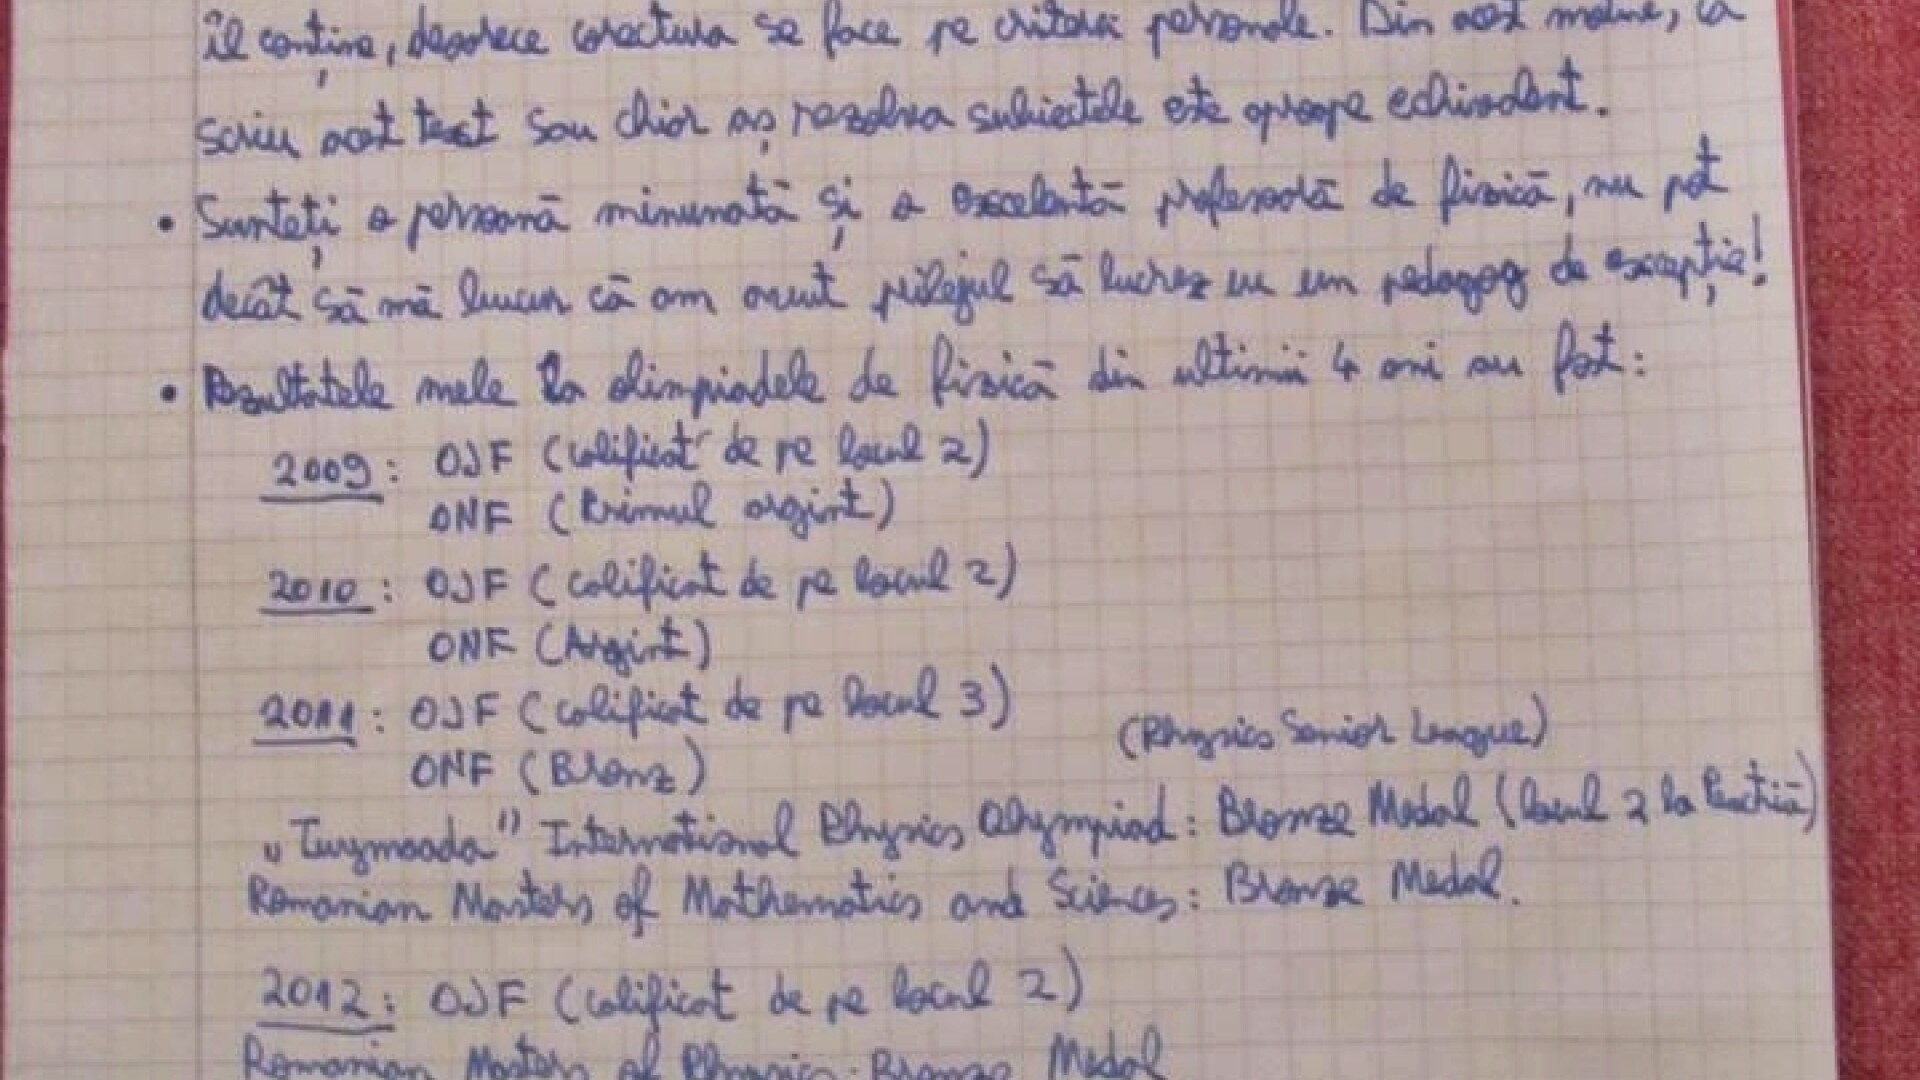 îl conține, deoarece corectura se face pe criterii personale. Din acest motiv, că
scriu acest text sau chiar aș rezolva subiectele este aproape echivalent.
• Sunteți o persoană minunată și o excelentă profesoară de fizică, nu pot
decât să mă bucur că am avut prilejul să lucrez cu un pedagog de excepție!
• Rezultatele mele la olimpiadele de fizică din ultimii 4 ani au fost:
2009: OJF (calificat de pe locul 2)
ONF (Primul argint)
2010: OJF (calificat de pe locul 2)
ONF (Argint)
2011: OJF (calificat de pe locul 3)
ONF (Bronz)
(Physics Senior League)
„Tuymaada" International Physics Olympiad: Bronze Medal (locul 2 la Practică)
Romanian Masters of Mathematics and Sciences: Bronze Medal.
2012: OJF (calificat de pe locul 2)
Romanian Masters of Physics: Bronze Medal